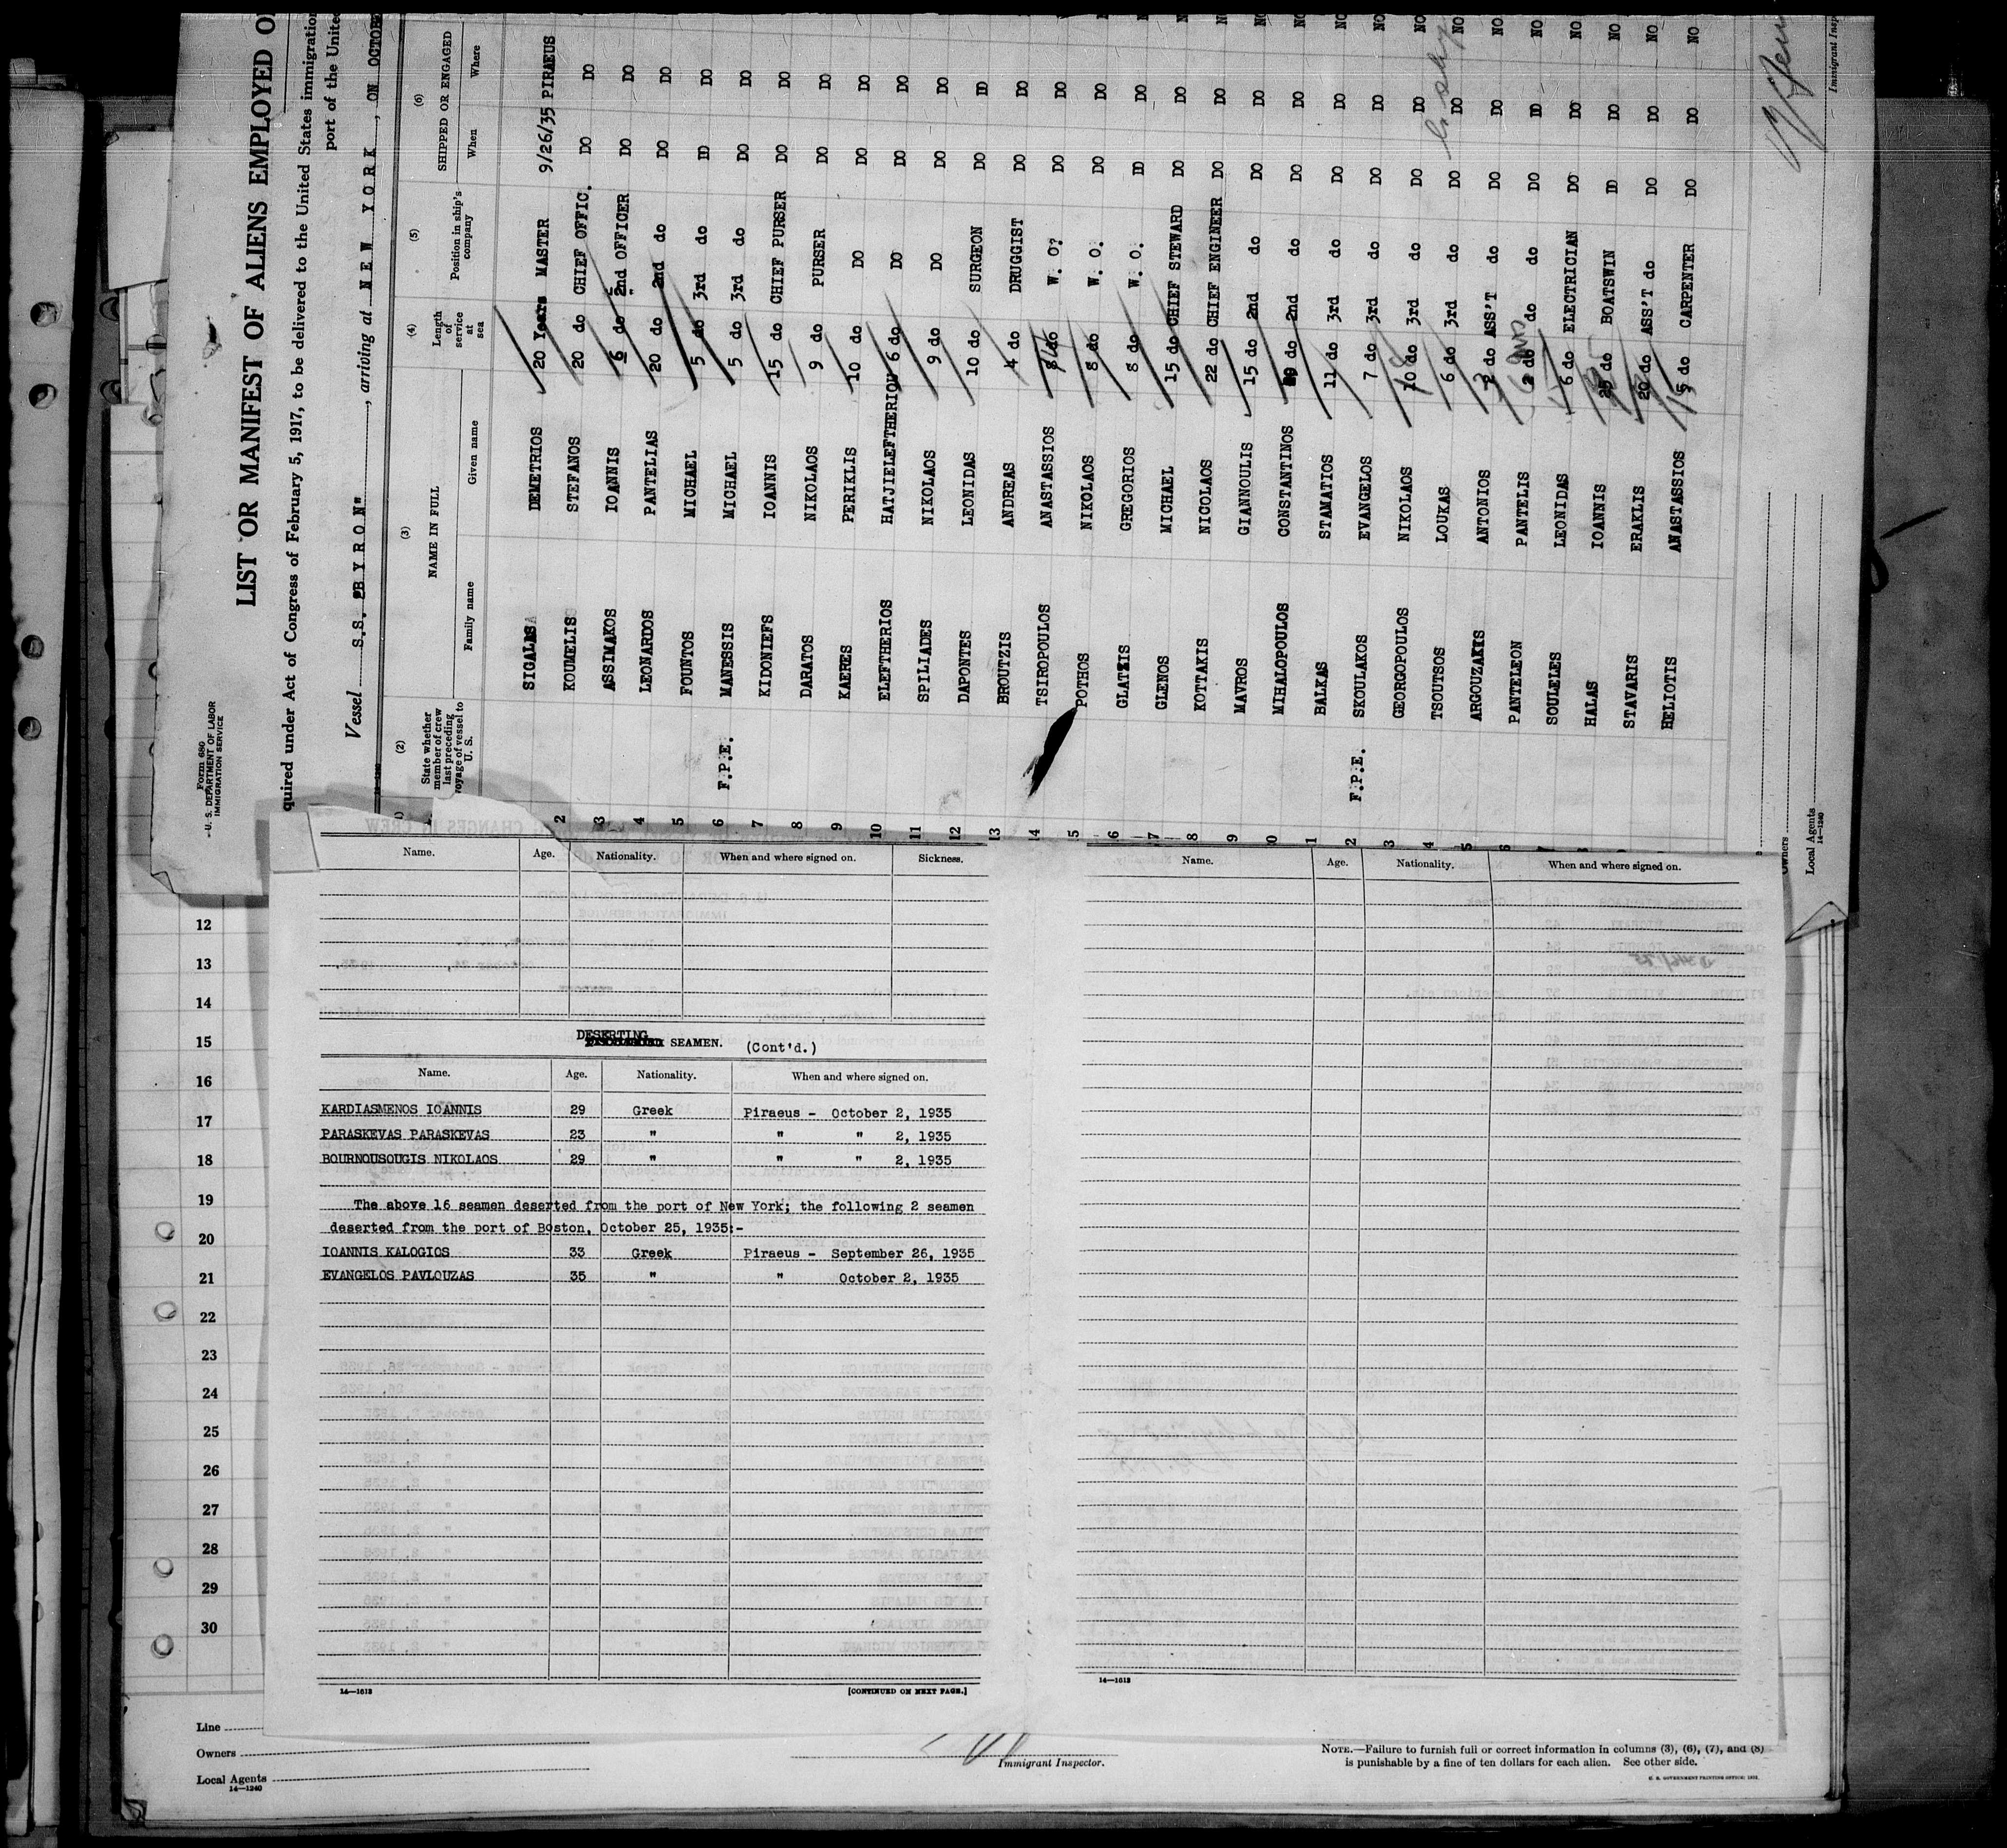 Form 680
U. S. DEPARTMENT OF LABOR
IMMIGRATION SERVICE
LIST OR MANIFEST OF ALIENS EMPLOYED
quired under Act of Congress of February 5, 1917, to be delivered to the United States immigration
port of the United
Vessel S.S. "BYRON", arriving at NEW YORK, ON OCTOBER
(2) (3) (4) (5) (6)
State whether member of crew last preceding voyage of vessel to U. S.
NAME IN FULL
Family name Given name
Length of service at sea
Position in ship's company
SHIPPED OR ENGAGED
When Where
SIGALAS DEMETRIOS 20 Years MASTER 9/26/35 PIRAEUS
2 KOUMELIS STEFANOS 20 do CHIEF OFFIC. DO DO NO
3 ASSIMAKOS IOANNIS 16 do 2nd OFFICER DO DO NO
4 LEONARDOS PANTELIAS 20 do 2nd do DO DO NO
5 FOUNTOS MICHAEL 5 do 3rd do DO DO NO
6 F.P.E. MANESSIS MICHAEL 5 do 3rd do DO DO NO
7 KIDONIEFS IOANNIS 15 do CHIEF PURSER DO DO NO
8 DARATOS NIKOLAOS 9 do PURSER DO DO NO
9 KAERES PERIKLIS 10 do DO DO DO NO
10 ELEFTHERIOS HATJIELEFTHERIOU 6 do DO DO DO NO
11 SPILIADES NIKOLAOS 9 do DO DO DO NO
12 DAPONTES LEONIDAS 10 do SURGEON DO DO NO
13 BROUTZIS ANDREAS 4 do DRUGGIST DO DO NO
14 TSIROPOULOS ANASTASSIOS 8 do W. O. DO DO NO
15 POTHOS NIKOLAOS 8 do W. O. DO DO NO
16 GLATZIS GREGORIOS 8 do W. O. DO DO NO
17 GLENOS MICHAEL 15 do CHIEF STEWARD DO DO NO
8 KOTTAKIS NICOLAOS 22 do CHIEF ENGINEER DO DO NO
9 MAVROS GIANNOULIS 15 do 2nd do DO DO NO
0 MIHALOPOULOS CONSTANTINOS do 2nd do DO DO NO
1 BALKAS STAMATIOS 11 do 3rd do DO DO NO
2 F.P.E. SKOULAKOS EVANGELOS 7 do 3rd do DO DO NO
3 GEORGOPOULOS NIKOLAOS 10 do 3rd do DO DO NO
4 TSOUTSOS LOUKAS 6 do 3rd do DO DO NO
5 ARGOUZAKIS ANTONIOS 2 do ASS'T do DO DO NO
6 PANTELEON PANTELIS 2 do do do DO DO NO
SOULELES LEONIDAS 6 do ELECTRICIAN DO DO NO
HALAS IOANNIS 25 do BOATSWIN DO DO NO
STAVARIS ERAKLIS 20 do ASS'T do DO DO NO
HELIOTIS ANASTASSIOS 15 do CARPENTER DO DO NO
Owners
Local Agents
14—1240
Immigrant Insp
Name. Age. Nationality. When and where signed on. Sickness.
DESERTING SEAMEN. (Cont'd.)
Name. Age. Nationality. When and where signed on.
KARDIASMENOS IOANNIS 29 Greek Piraeus - October 2, 1935
PARASKEVAS PARASKEVAS 23 " " " 2, 1935
BOURNOUSOUGIS NIKOLAOS 29 " " " 2, 1935
The above 16 seamen deserted from the port of New York; the following 2 seamen
deserted from the port of Boston, October 25, 1935:-
IOANNIS KALOGIOS 33 Greek Piraeus - September 26, 1935
EVANGELOS PAVLOUZAS 35 " " October 2, 1935
14—1613 [CONTINUED ON NEXT PAGE.]
Name. Age. Nationality. When and where signed on.
14—1613
12
13
14
15
16
17
18
19
20
21
22
23
24
25
26
27
28
29
30
Line
Owners
Local Agents
14—1240
Immigrant Inspector.
NOTE.—Failure to furnish full or correct information in columns (3), (6), (7), and (8)
is punishable by a fine of ten dollars for each alien. See other side.